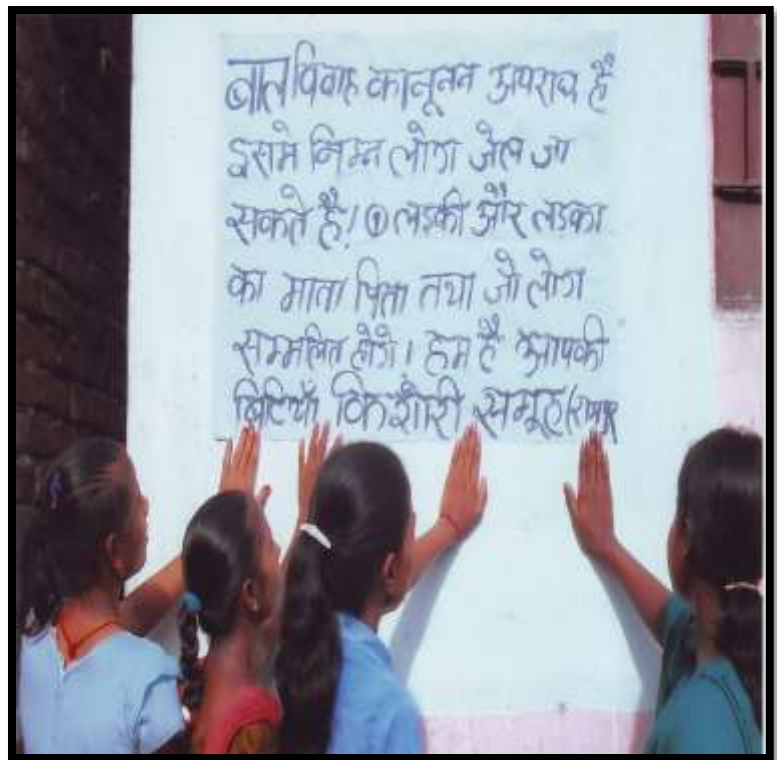 बाल विवाह कानूनन अपराध है
इसमे निम्न लोग जेल जा
सकते है! ① लड़की और लड़का
का माता पिता तथा जो लोग
सम्मलित होगे। हम है आपकी
बिटियाँ किशोरी समूह